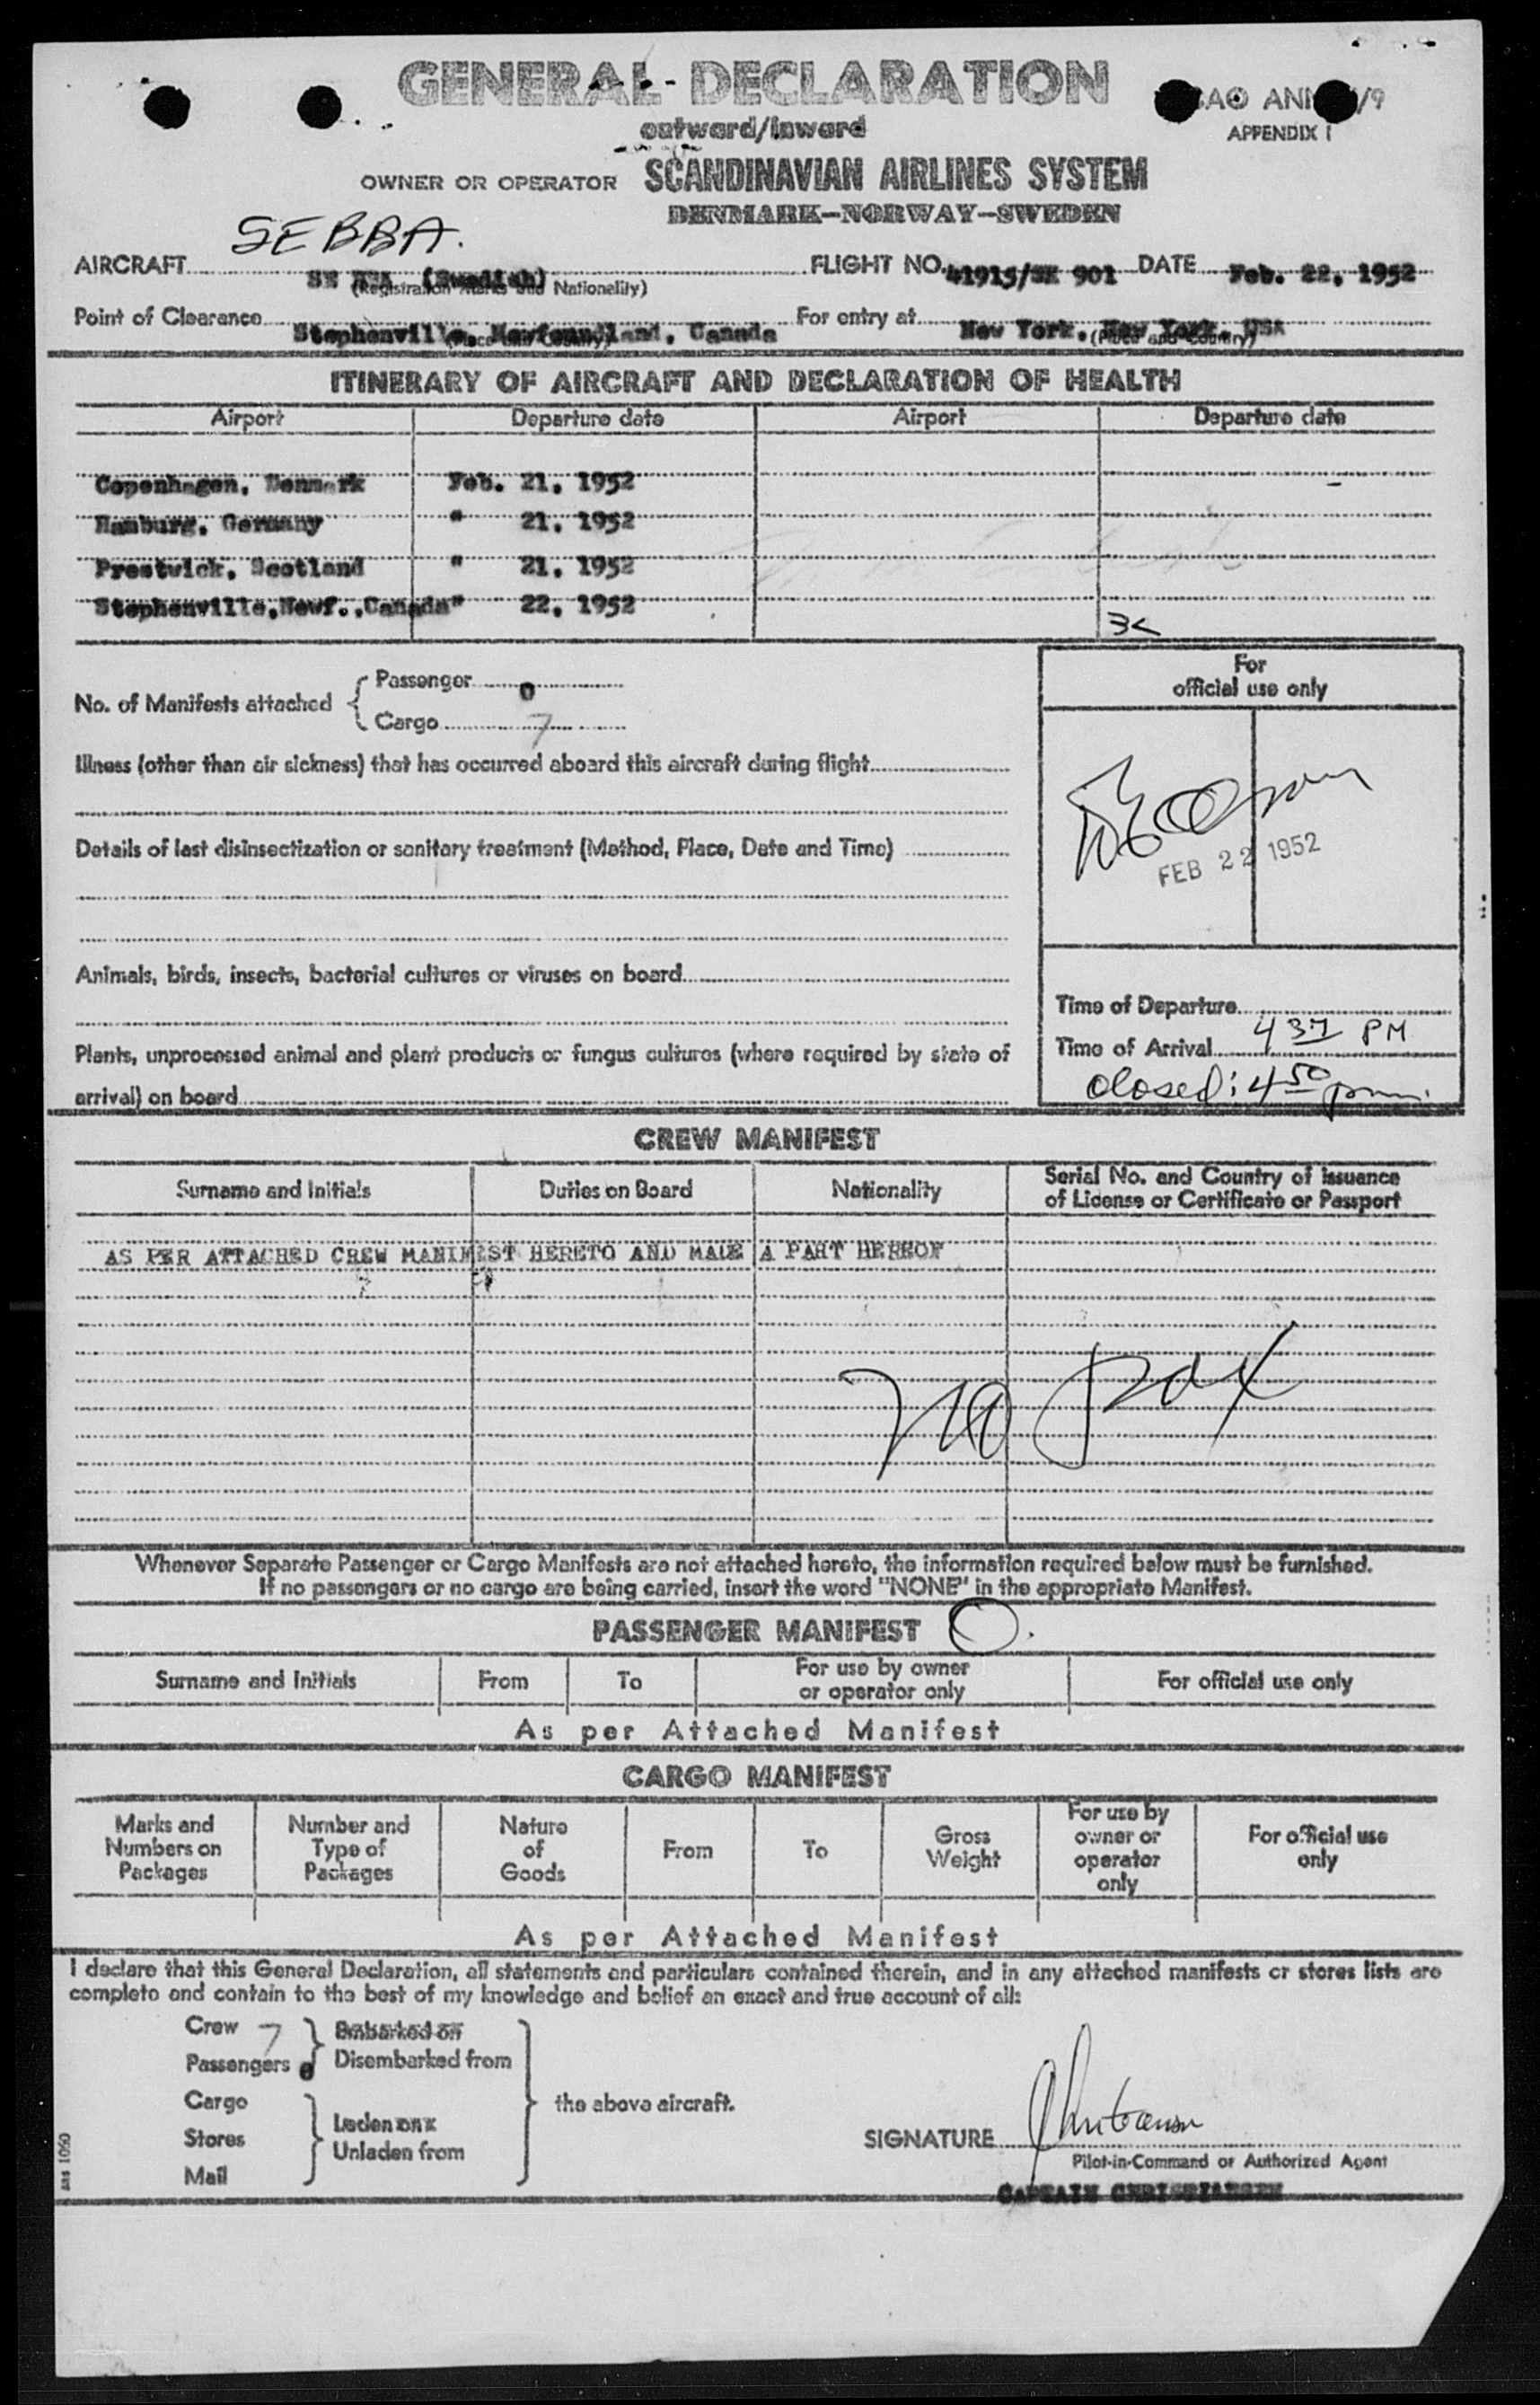 GENERAL DECLARATION
outward/inward
APPENDIX I
OWNER OR OPERATOR SCANDINAVIAN AIRLINES SYSTEM
DENMARK-NORWAY-SWEDEN
SEBBA.
AIRCRAFT SE (Swedish) FLIGHT NO. 41915/SK 901 DATE Feb. 22, 1952
(Registration Marks and Nationality)
Point of Clearance Stephenville, Newfoundland, Canada For entry at New York, New York, USA
(Place and Country) (Place and Country)
ITINERARY OF AIRCRAFT AND DECLARATION OF HEALTH
Airport Departure date Airport Departure date
Copenhagen, Denmark Feb. 21, 1952
Hamburg, Germany " 21, 1952
Prestwick, Scotland " 21, 1952
Stephenville,Newf.,Canada" 22, 1952
For
official use only
No. of Manifests attached
Passenger 0
Cargo 7
Illness (other than air sickness) that has occurred aboard this aircraft during flight
Details of last disinsectization or sanitary treatment (Method, Place, Date and Time)
FEB 22 1952
Animals, birds, insects, bacterial cultures or viruses on board
Plants, unprocessed animal and plant products or fungus cultures (where required by state of
arrival) on board
Time of Departure
Time of Arrival 4 37 PM
closed: 4 50 pm.
CREW MANIFEST
Surname and Initials Duties on Board Nationality Serial No. and Country of issuance
of License or Certificate or Passport
AS PER ATTACHED CREW MANIFEST HERETO AND MADE A PART HEREOF
No Pax
Whenever Separate Passenger or Cargo Manifests are not attached hereto, the information required below must be furnished.
If no passengers or no cargo are being carried, insert the word "NONE" in the appropriate Manifest.
PASSENGER MANIFEST O.
Surname and Initials From To For use by owner
or operator only For official use only
As per Attached Manifest
CARGO MANIFEST
Marks and
Numbers on
Packages
Number and
Type of
Packages
Nature
of
Goods
From
To
Gross
Weight
For use by
owner or
operator
only
For official use
only
As per Attached Manifest
I declare that this General Declaration, all statements and particulars contained therein, and in any attached manifests or stores lists are
complete and contain to the best of my knowledge and belief an exact and true account of all:
Crew 7 Embarked on
Passengers 0 Disembarked from
Cargo
Stores
Mail
Laden on
Unladen from
the above aircraft.
SIGNATURE Christiansen
Pilot-in-Command or Authorized Agent
CAPTAIN CHRISTIANSEN
sas 1050